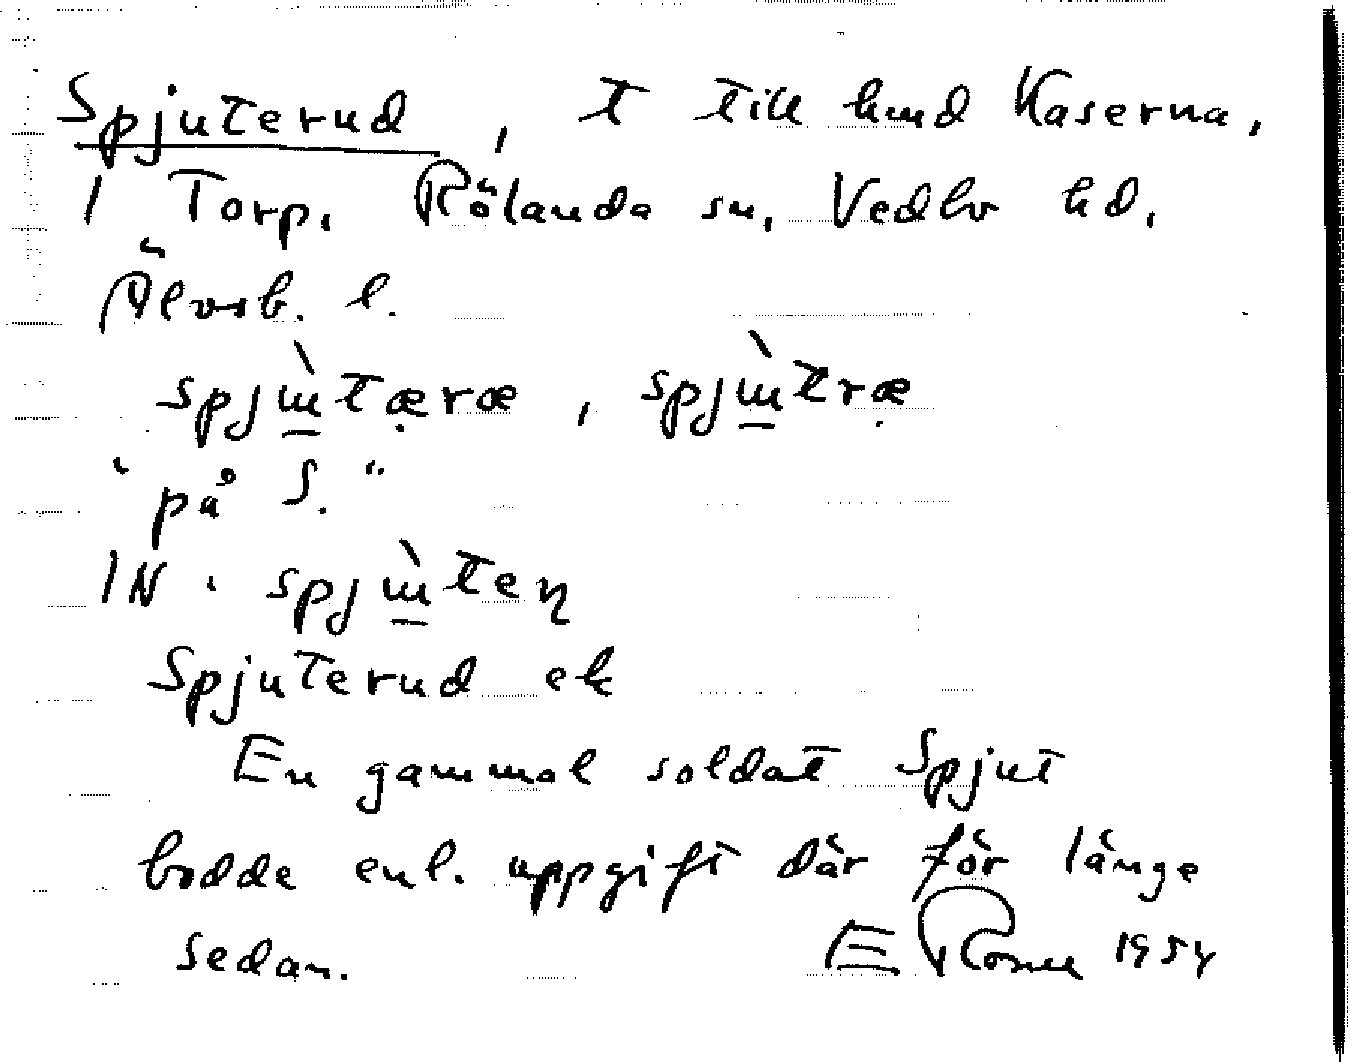 Spjuterud, t till hmd Kaserna,
1 Torp. Rölanda sn, Vedbo hd,
Älvsb. l.
spjɯ̀tærœ, spjɯ̀træ
"på S."
IN. spjɯ̀teɳ
Spjuterud ek
En gammal soldat Spjut
bodde enl. uppgift där för länge
sedan. E 1954